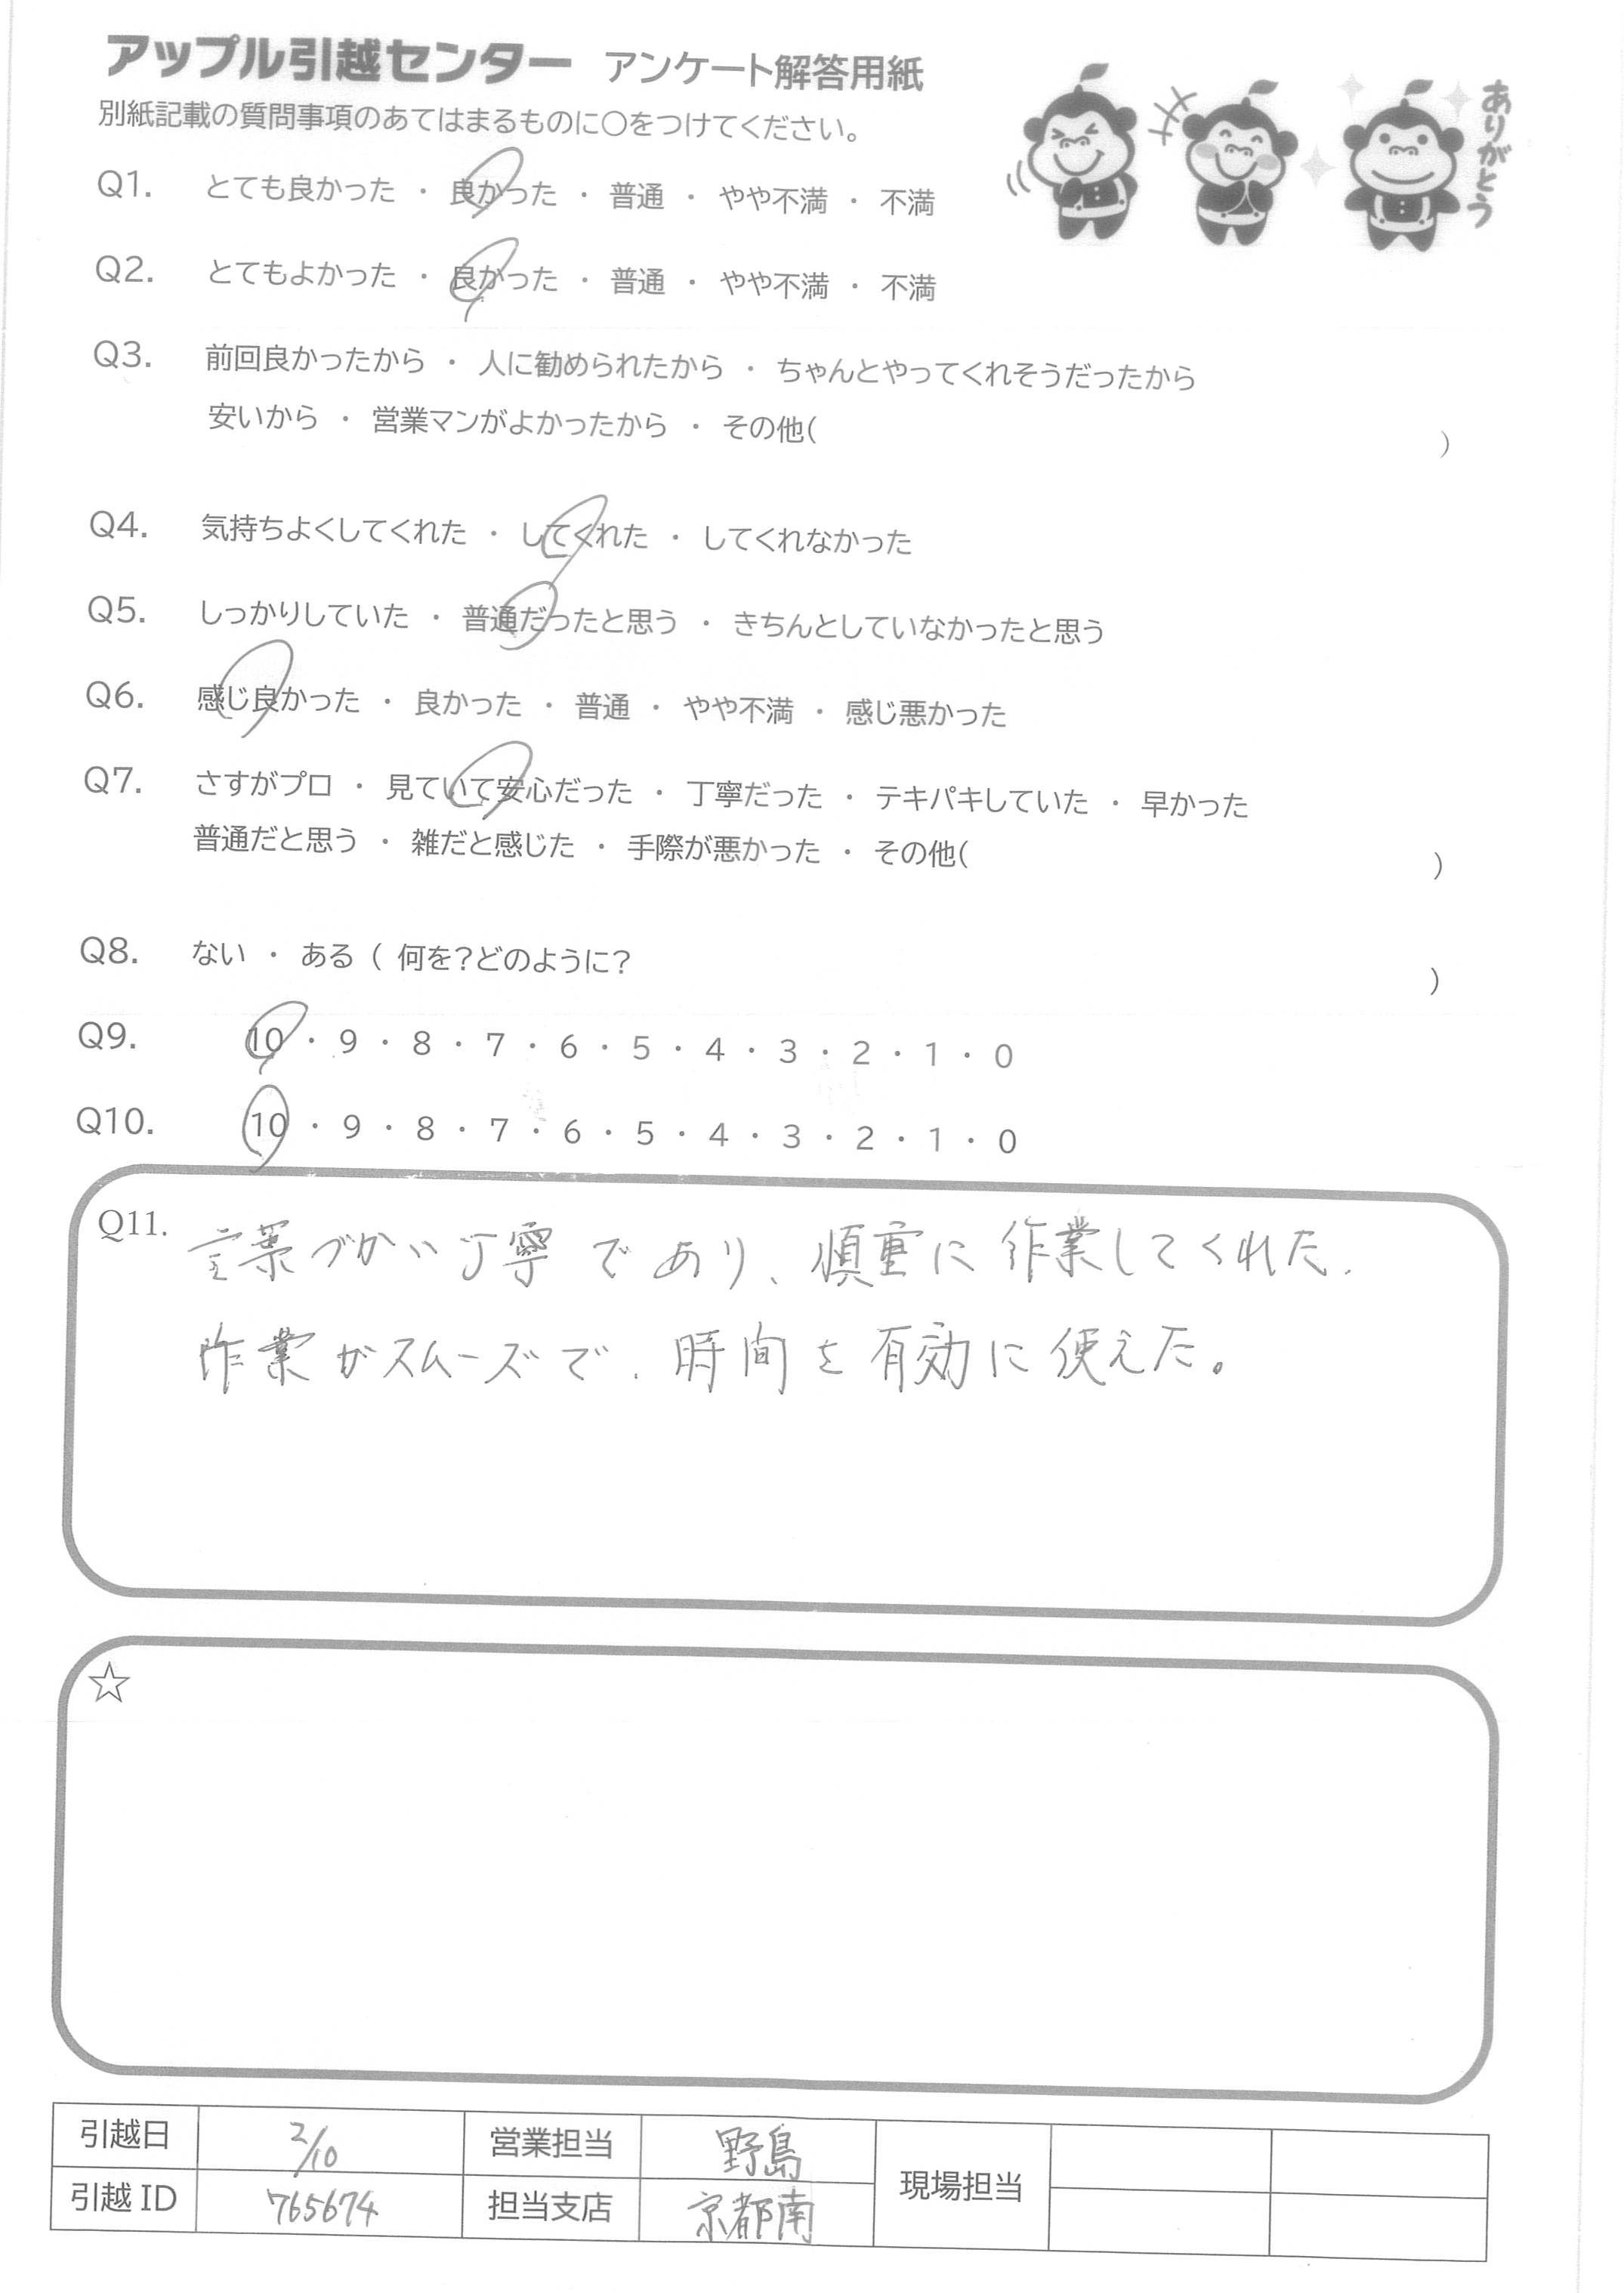 アップル引越センター アンケート解答用紙
別紙記載の質問事項のあてはまるものに○をつけてください。
ありがとう
Q1. とても良かった ・ 良かった ・ 普通 ・ やや不満 ・ 不満
Q2. とてもよかった ・ 良かった ・ 普通 ・ やや不満 ・ 不満
Q3. 前回良かったから ・ 人に勧められたから ・ ちゃんとやってくれそうだったから
安いから ・ 営業マンがよかったから ・ その他( )
Q4. 気持ちよくしてくれた ・ してくれた ・ してくれなかった
Q5. しっかりしていた ・ 普通だったと思う ・ きちんとしていなかったと思う
Q6. 感じ良かった ・ 良かった ・ 普通 ・ やや不満 ・ 感じ悪かった
Q7. さすがプロ ・ 見ていて安心だった ・ 丁寧だった ・ テキパキしていた ・ 早かった
普通だと思う ・ 雑だと感じた ・ 手際が悪かった ・ その他( )
Q8. ない ・ ある ( 何を?どのように? )
Q9. 10 ・ 9 ・ 8 ・ 7 ・ 6 ・ 5 ・ 4 ・ 3 ・ 2 ・ 1 ・ 0
Q10. 10 ・ 9 ・ 8 ・ 7 ・ 6 ・ 5 ・ 4 ・ 3 ・ 2 ・ 1 ・ 0
Q11. 言葉づかい丁寧であり、慎重に作業してくれた.
作業がスムーズで、時間を有効に使えた。
☆
引越日 2/10 営業担当 野島 現場担当
引越ID 765674 担当支店 京都南